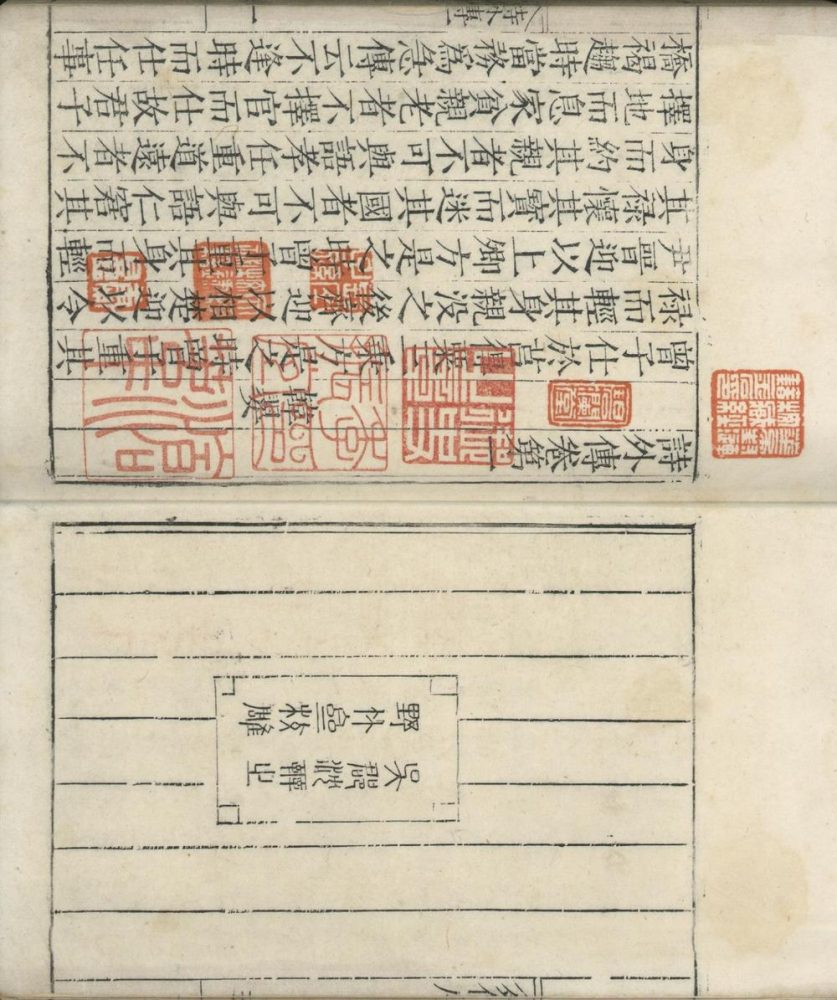 吳郡沈辨之
野竹齋校雕
詩外傳卷第一
韓嬰
曾子仕於莒得粟三秉方是之時曾子重其
禄而輕其身親没之後齊迎以相楚迎以令
尹晉迎以上卿方是之時曾子重其身而輕
其禄懷其寶而迷其國者不可與語仁窘其
身而約其親者不可與語孝任重道遠者不
擇地而息家貧親老者不擇官而仕故君子
橋褐趨時當務爲急傳云不逢時而仕任事